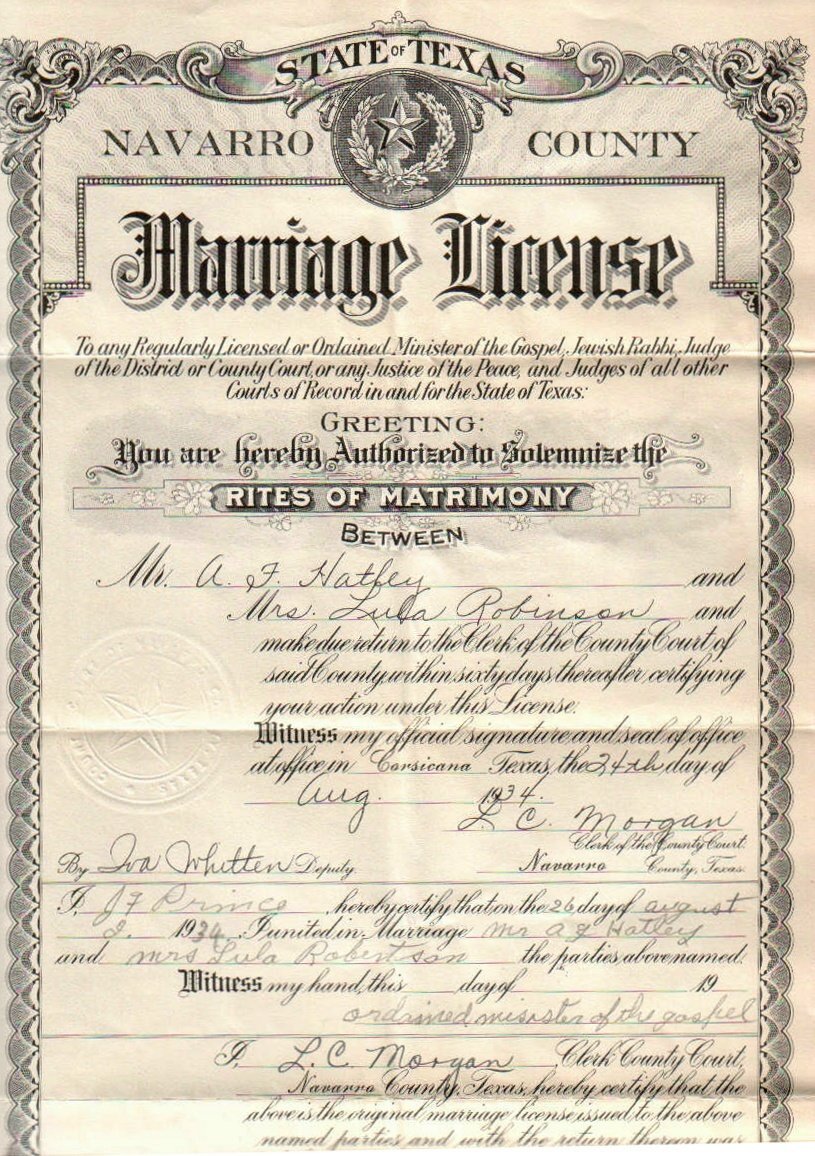 STATE OF TEXAS
NAVARRO COUNTY
Marriage License
To any Regularly Licensed or Ordained Minister of the Gospel, Jewish Rabbi, Judge
of the District or County Court, or any Justice of the Peace, and Judges of all other
Courts of Record in and for the State of Texas:
GREETING:
You are hereby Authorized to Solemnize the
RITES OF MATRIMONY
BETWEEN
Mr. A. F. Hatley and
Mrs. Lula Robinson and
make due return to the Clerk of the County Court of
said County within sixty days thereafter, certifying
your action under this License.
Witness my official signature and seal of office
at office in Corsicana Texas, the 24th day of
Aug. 1934.
L. C. Morgan
Clerk of the County Court.
By Iva Whitten Deputy. Navarro County, Texas.
I, J F Prince hereby certify that on the 26 day of august
1934, I united in Marriage mr a F Hatley
and mrs Lula Robertson the parties above named.
Witness my hand, this day of 19
ordained minister of the gospel
I, L. C. Morgan Clerk County Court,
Navarro County, Texas, hereby certify that the
above is the original marriage license issued to the above
named parties and with the return thereon was